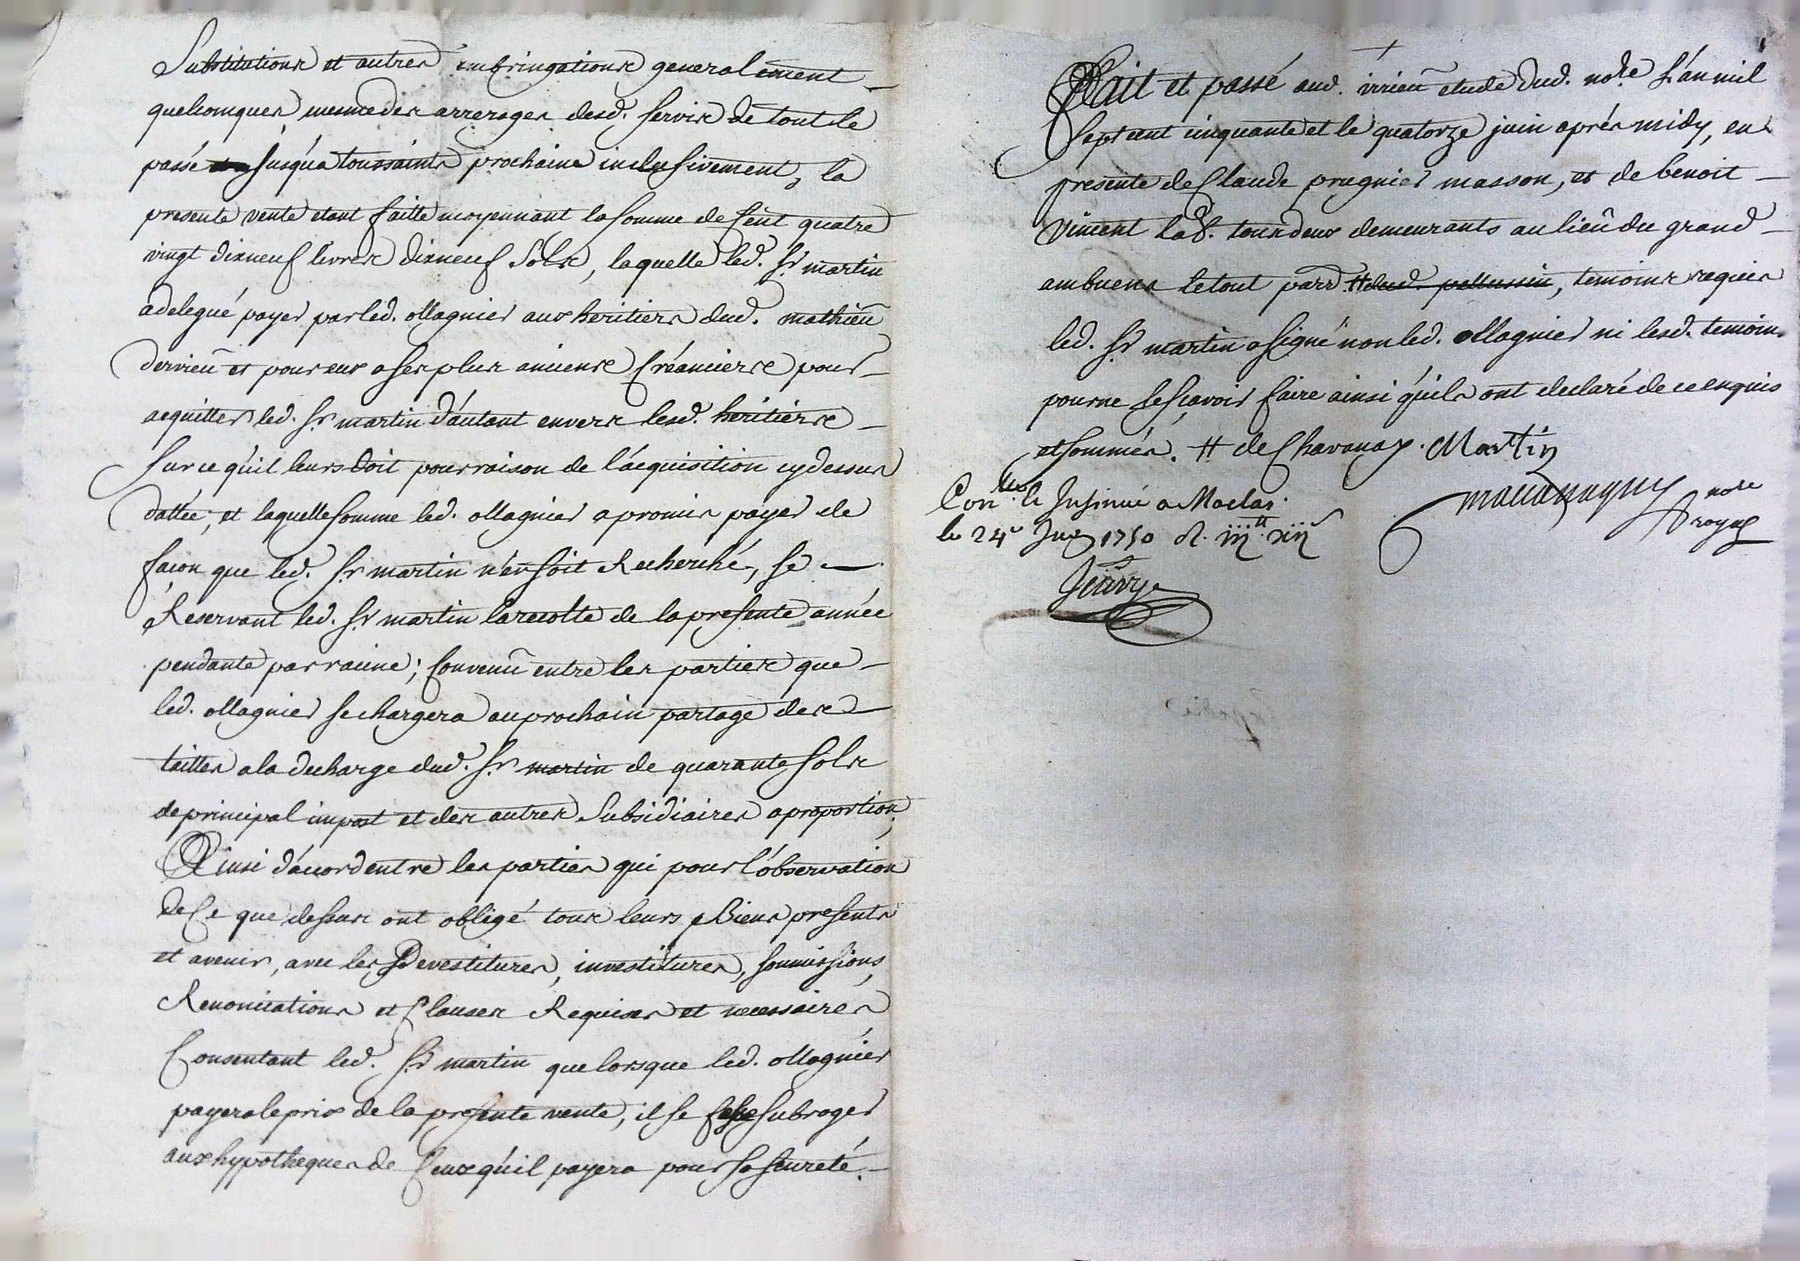 Substitutions et autres imbringations generalement
quelconques mesme des arrerages desd. servis de tout le
passé jusqu'a toussaints prochains inclusivement, la
presente vente etant faitte moyennant la somme de Cent quatre
vingt dixneuf livres dixneuf Sols, laquelle led. Sr martin
a delegué payer par led. ollagnier aux heritiers dud. mathieu
dervieu et pour eux a ses plus anciens Créanciers pour
acquitter led. Sr martin d'autant envers lesd. heritiers
sur ce qu'il leurs doit pour raison de l'acquisition cy dessus
dattée, et laquelle somme led. ollagnier a promis payer de
façon que led. Sr martin n'en soit Recherché, se
Reservant led. Sr martin la recolte de la presente année
pendante par racine; Convenu entre les parties que
led. ollagnier se chargera au prochain partage des
tailles a la decharge dud. Sr martin de quarante sols
de principal impost et des autres Subsidiaires a proportion,
Ainsi d'accord entre les parties qui pour l'observation
de Ce que dessus ont obligé tous leurs Biens presents
et avenir, avec les Devestitures, investitures, soumissions,
Renonciations et Clauses Requises et necessaires
Consentant led. Sr martin que lorsque led. ollagnier
payera le prix de la presente vente, il se fasse subroger
aux hypotheques de Ceux qu'il payera pour sa seureté.
Fait et passé aud. virieu etude dud. nore L'an mil
sept cent cinquante et le quatorze juin aprés midy, en
presence de Claude prugnier masson, et de benoit
vincent demeurants au lieu du grand
ambuens le tout parr. # dud. pellussin, temoins requis
led. Sr martin a signé non led. ollagnier ni lesd. temoins
pour ne le sçavoir faire ainsi qu'ils ont declaré de ce enquis
et sommés. # de Chavanay. Martin
nore
royal
Con.lé & Insinué a Maclas
le 24e Juin 1750 R. iij# xijs